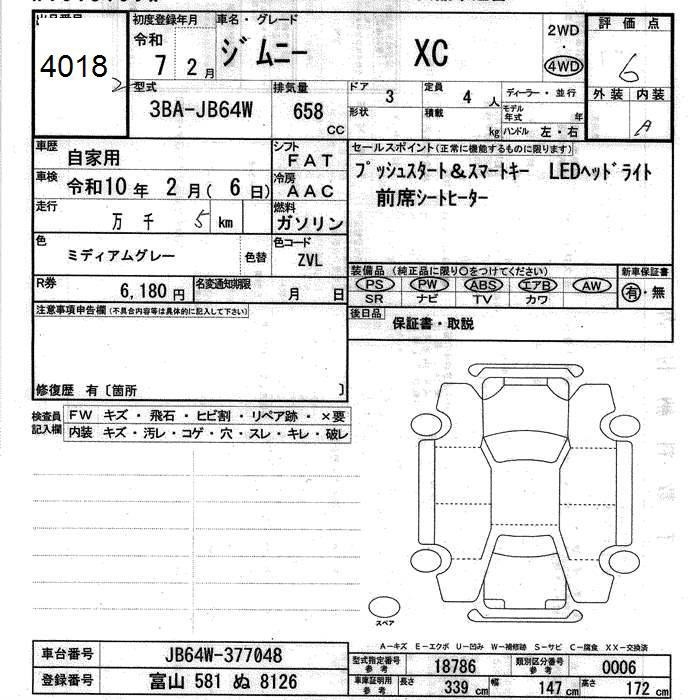 4018
初度登録年月 車名・グレード
令和 7 2月 ジムニー XC 2WD ・ 4WD
評価点 6
外装 内装 A
型式 3BA-JB64W
排気量 658 CC
ドア 3 定員 4 人
形状 積載 kg
ディーラー・並行
モデル年式 年
ハンドル 左・右
車歴 自家用
シフト FAT
車検 令和10年 2月( 6日)
冷房 AAC
走行 万 千 5 km
燃料 ガソリン
色 ミディアムグレー 色替
色コード ZVL
R券 6,180円 名変通知期限 月 日
セールスポイント(正常に機能するものに限ります)
プッシュスタート&スマートキー LEDヘッドライト
前席シートヒーター
装備品 (純正品に限り○をつけてください) 新車保証書
PS PW ABS エアB AW 有・無
SR ナビ TV カワ
後日品 保証書・取説
注意事項申告欄(不具合内容等は具体的に記入して下さい)
修復歴 有〔箇所 〕
検査員記入欄
FW キズ・飛石・ヒビ割・リペア跡・×要
内装 キズ・汚レ・コゲ・穴・スレ・キレ・破レ
スペア
A-キズ E-エクボ U-凹み W-補修跡 S-サビ C-腐食 XX-交換済
車台番号 JB64W-377048
登録番号 富山 581 ぬ 8126
型式指定番号参考 18786 類別区分番号参考 0006
車庫証明用参考 長さ 339 cm 幅 147 cm 高さ 172 cm